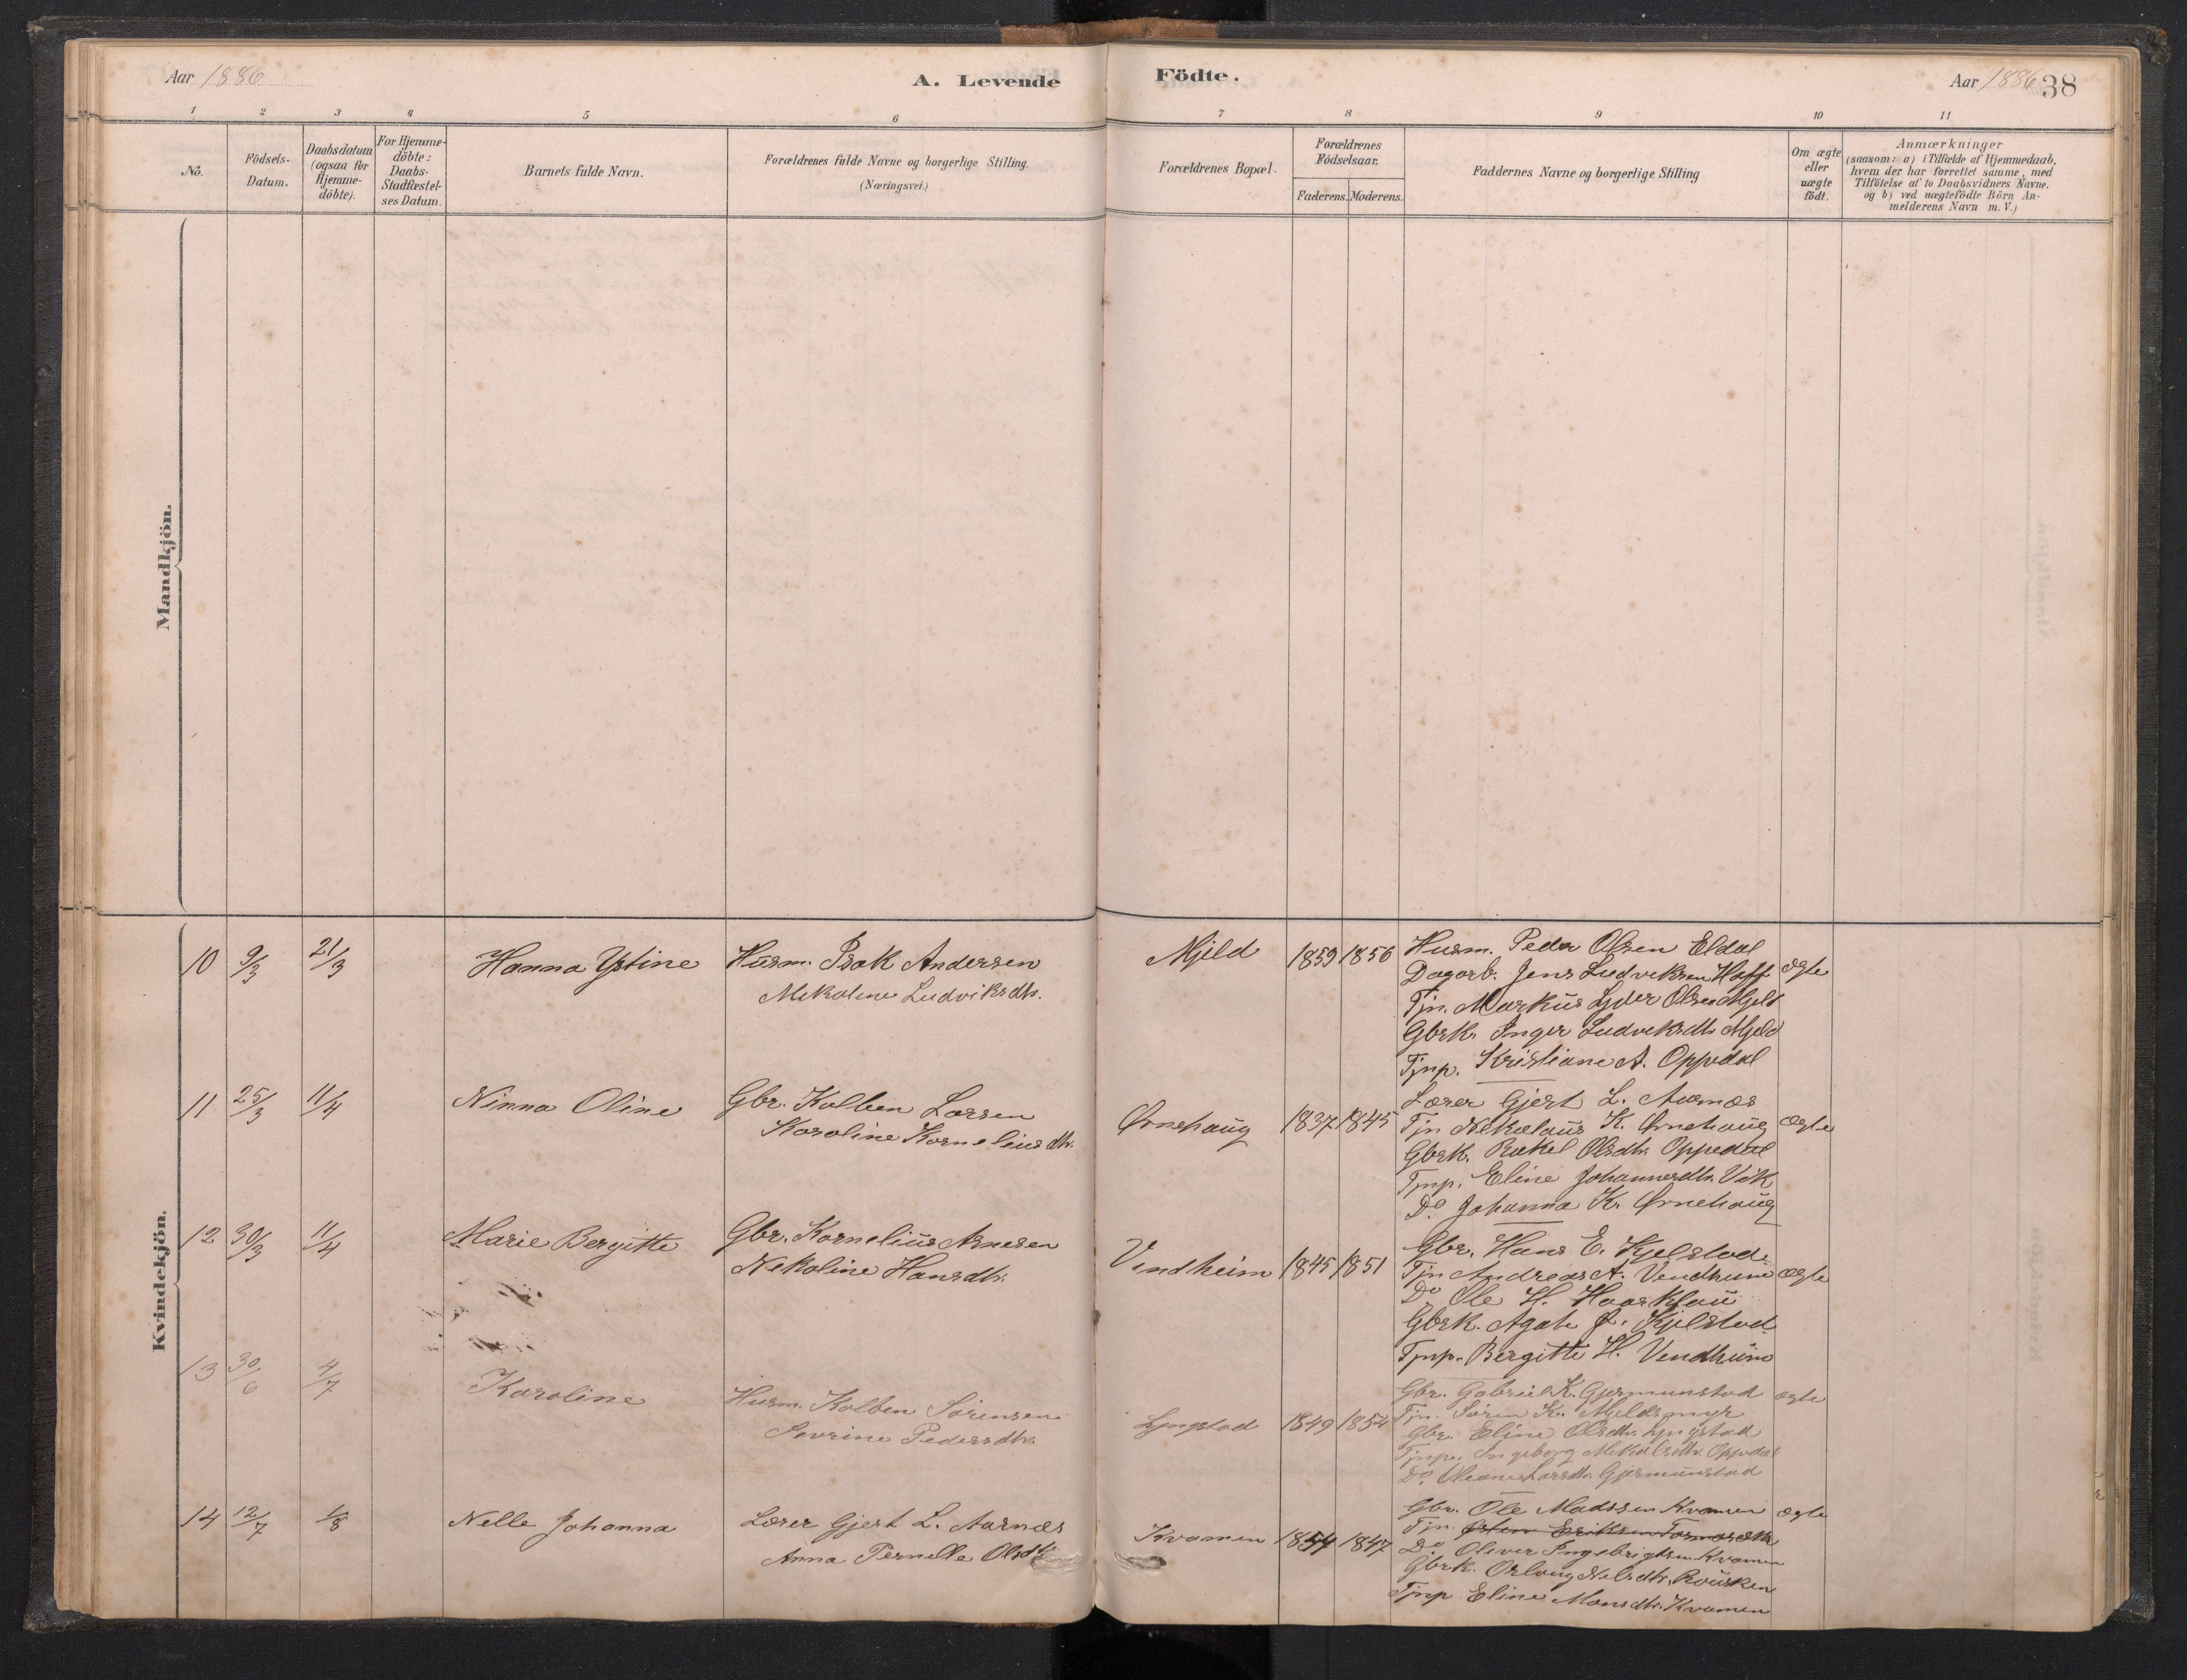 Aar 1886
A. Levende
Födte.
Aar 1886
38
1 2 3 4 5 6 7 8 9 10 11
No.
Födsels-
Datum.
Daabsdatum
(ogsaa for
Hjemme-
döbte).
For Hjemme-
döbte:
Daabs-
Stadfæstel-
ses Datum.
Barnets fulde Navn.
Forældrenes fulde Navne og borgerlige Stilling.
(Næringsvei.)
Forældrenes Bopæl.
Forældrenes
Födselsaar.
Faderens. Moderens.
Faddernes Navne og borgerlige Stilling
Om ægte
eller
uægte
födt.
Anmærkninger
(saasom: a) i Tilfælde af Hjemmedaab,
hvem der har forrettet samme, med
Tilföielse af to Daabsvidners Navne.
og b) ved uægtefödte Börn An-
melderens Navn m. V.)
Mandkjön.
Kvindekjön.
10 9/3 21/3 Hanna Ystine
Husm. Isak Andersen
Mekoline Ludviksdtr.
Mjeld 1859 1856
Husm. Peder Olsen Eldal
Dagarb. Jens Ludviksen Hoff
Tjn. Markus Lyder Olsen Mjeld
Gbrk. Inger Ludviksdtr Mjeld
Tjnp. Kristiane A. Oppedal
ægte
11 25/3 11/4 Ninna Oline
Gbr. Kolben Larsen
Karoline Korneliusdtr.
Ørnehaug 1837 1845
Lærer Gjert L. Aarnæs
Tjn Nekolaus K. Ørnehaug
Gbrk. Rakel Olsdtr. Oppedal
Tjnp. Eline Johannesdtr. Vik
Do Johanna K. Ørnehaug
ægte
12 30/3 11/4 Marie Bergitte
Gbr. Kornelius Arnesen
Nekoline Hansdtr.
Vindheim 1845 1851
Gbr. Hans E. Kjelstad
Tjn Andreas A. Vendheim
Do Ole H. Haasklau
Gbrk. Agate J. Kjelstad
Tjnp. Bergitte H. Vendheim
ægte
13 30/6 4/7 Karoline
Husm. Kolben Sörensen
Sevrine Pedersdtr.
Lyngstad 1849 1854
Gbr. Gabriel K. Gjermunstad
Tjn. Sören K. Mjeldsmyr
Gbr. Eline Olsdtr. Lyngstad
Tjnp. Ingeborg Mekalsdtr. Oppedal
Do Oleane Larsdtr. Gjermunstad
ægte
14 12/7 1/8 Nelle Johanna
Lærer Gjert L. Aarnæs
Anna Pernelle Olsdtr
Kvamen 1854 1847
Gbr. Ole Madssen Kvamen
Tjn. Eriksen
Do Oliver Ingebrigtsen Kvamen
Gbrk. Oslaug Nelsdtr. Rousken
Tjnp Eline Monsdtr. Kvamen
ægte